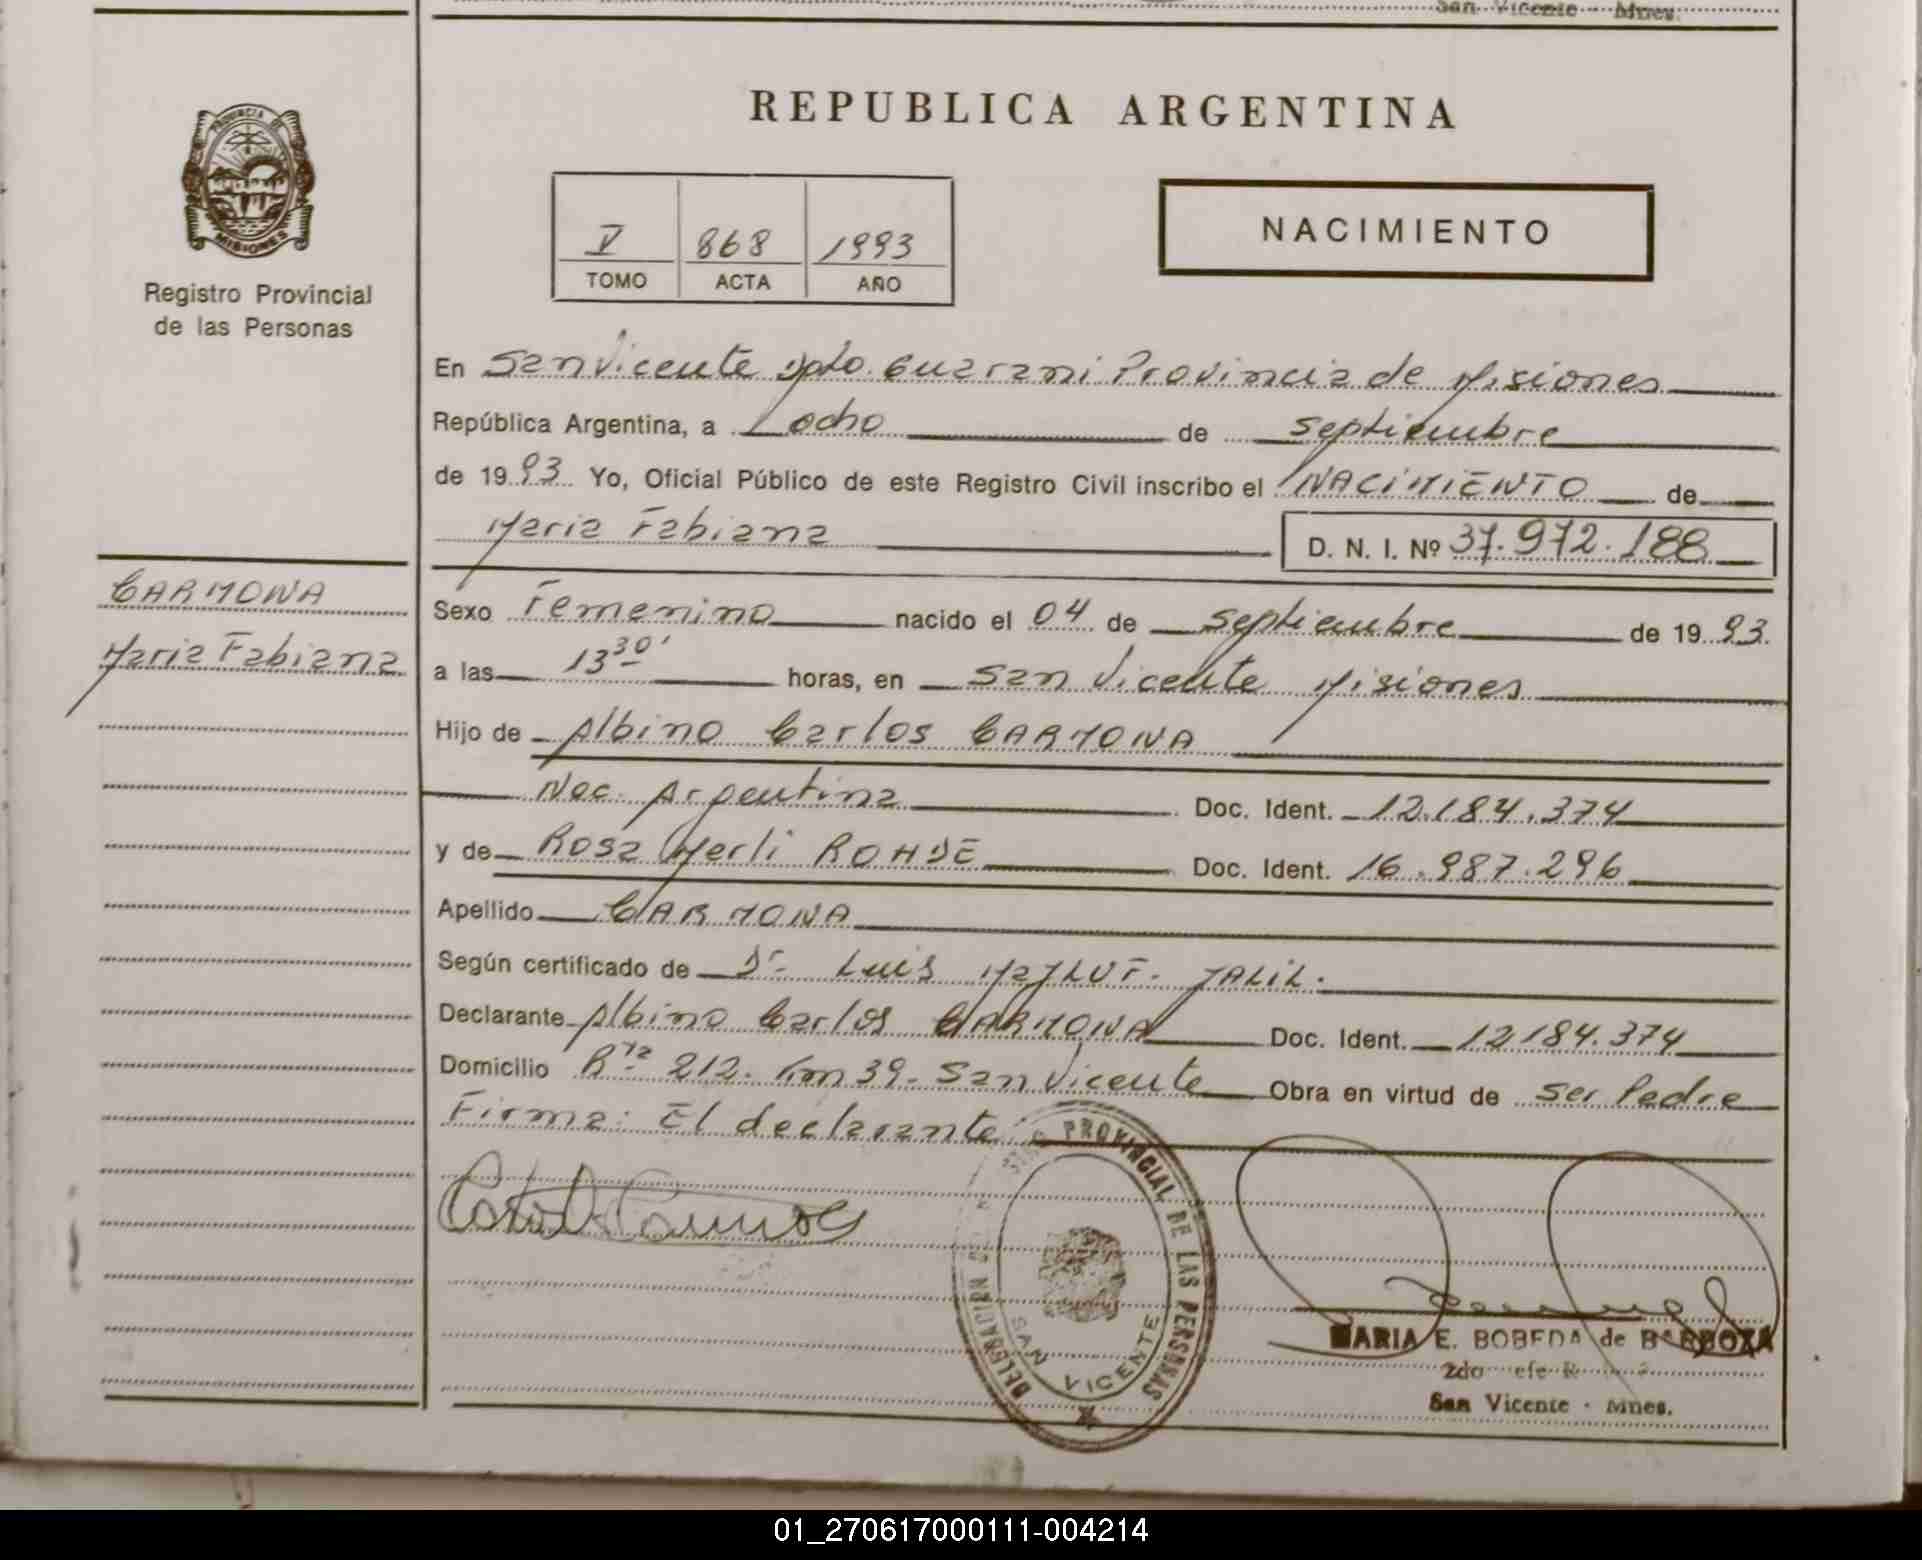 San Vicente - Mnes.
REPUBLICA ARGENTINA
PROVINCIA DE
MISIONES
Registro Provincial
de las Personas
V 868 1993
TOMO ACTA AÑO
NACIMIENTO
En San Vicente Dpto. Guarani Provincia de Misiones
República Argentina, a ocho de septiembre
de 1993 Yo, Oficial Público de este Registro Civil inscribo el NACIMIENTO de
Maria Fabiana D. N. I. Nº 37.972.188
CARMONA
Maria Fabiana
Sexo Femenino nacido el 04 de septiembre de 1993.
a las 13 30' horas, en San Vicente Misiones
Hijo de Albino Carlos CARMONA
Nac. Argentina Doc. Ident. 12.184.374
y de Rosa Merli ROHDE Doc. Ident. 16.987.296
Apellido CARMONA
Según certificado de Dr. Luis MAJLUF. JALIL.
Declarante Albino Carlos CARMONA Doc. Ident. 12184.374
Domicilio Rta 212. Km 39. San Vicente Obra en virtud de ser Padre
Firma: El declarante
PROVINCIAL DE LAS PERSONAS
DELEGACION
SAN VICENTE
MARIA E. BOBEDA de BARBOZA
2do
San Vicente - Mnes.
01_270617000111-004214